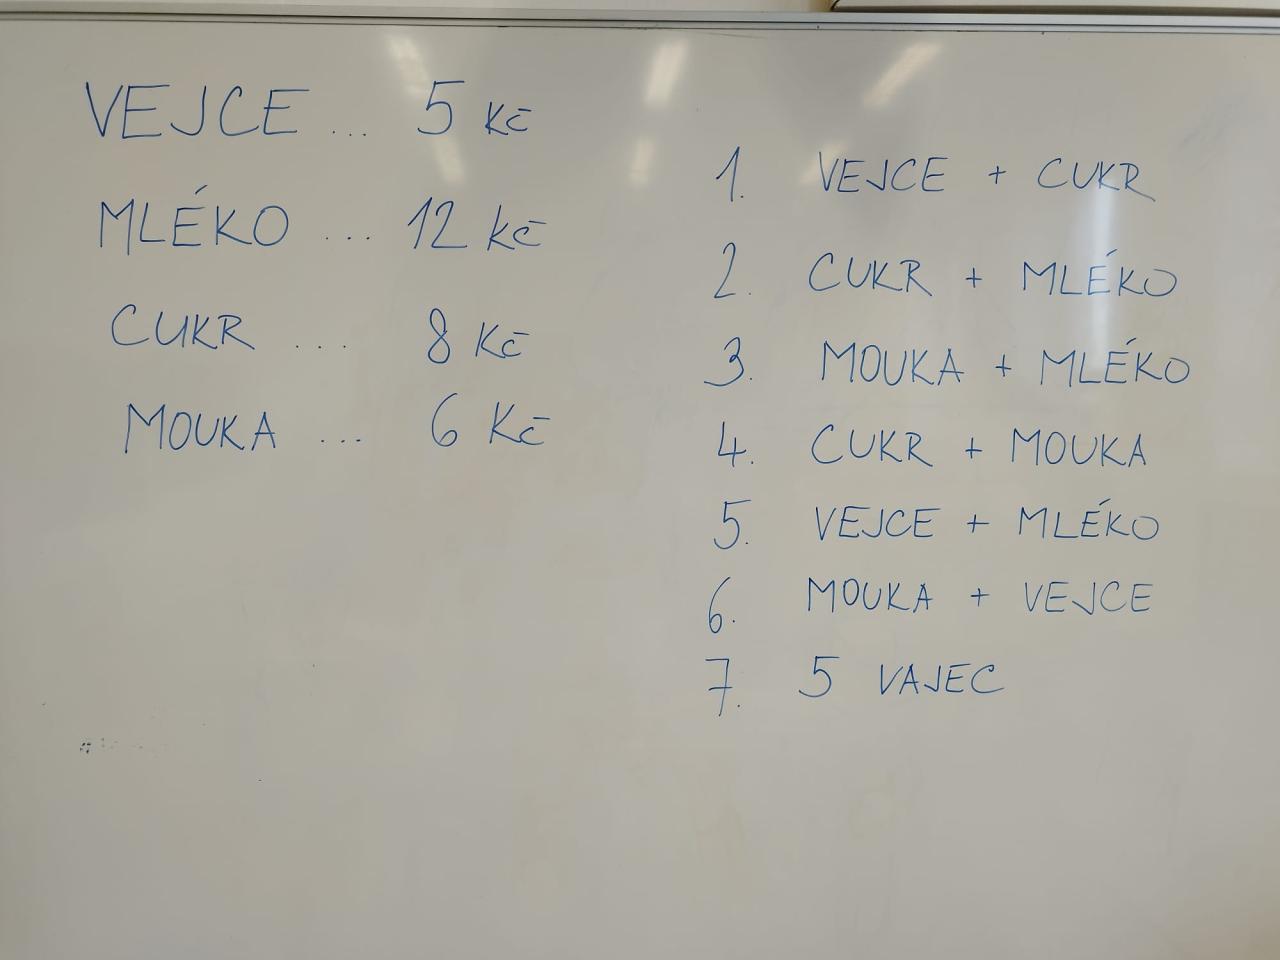 VEJCE ... 5 Kč
MLÉKO ... 12 Kč
CUKR ... 8 Kč
MOUKA ... 6 Kč
1. VEJCE + CUKR
2. CUKR + MLÉKO
3. MOUKA + MLÉKO
4. CUKR + MOUKA
5. VEJCE + MLÉKO
6. MOUKA + VEJCE
7. 5 VAJEC